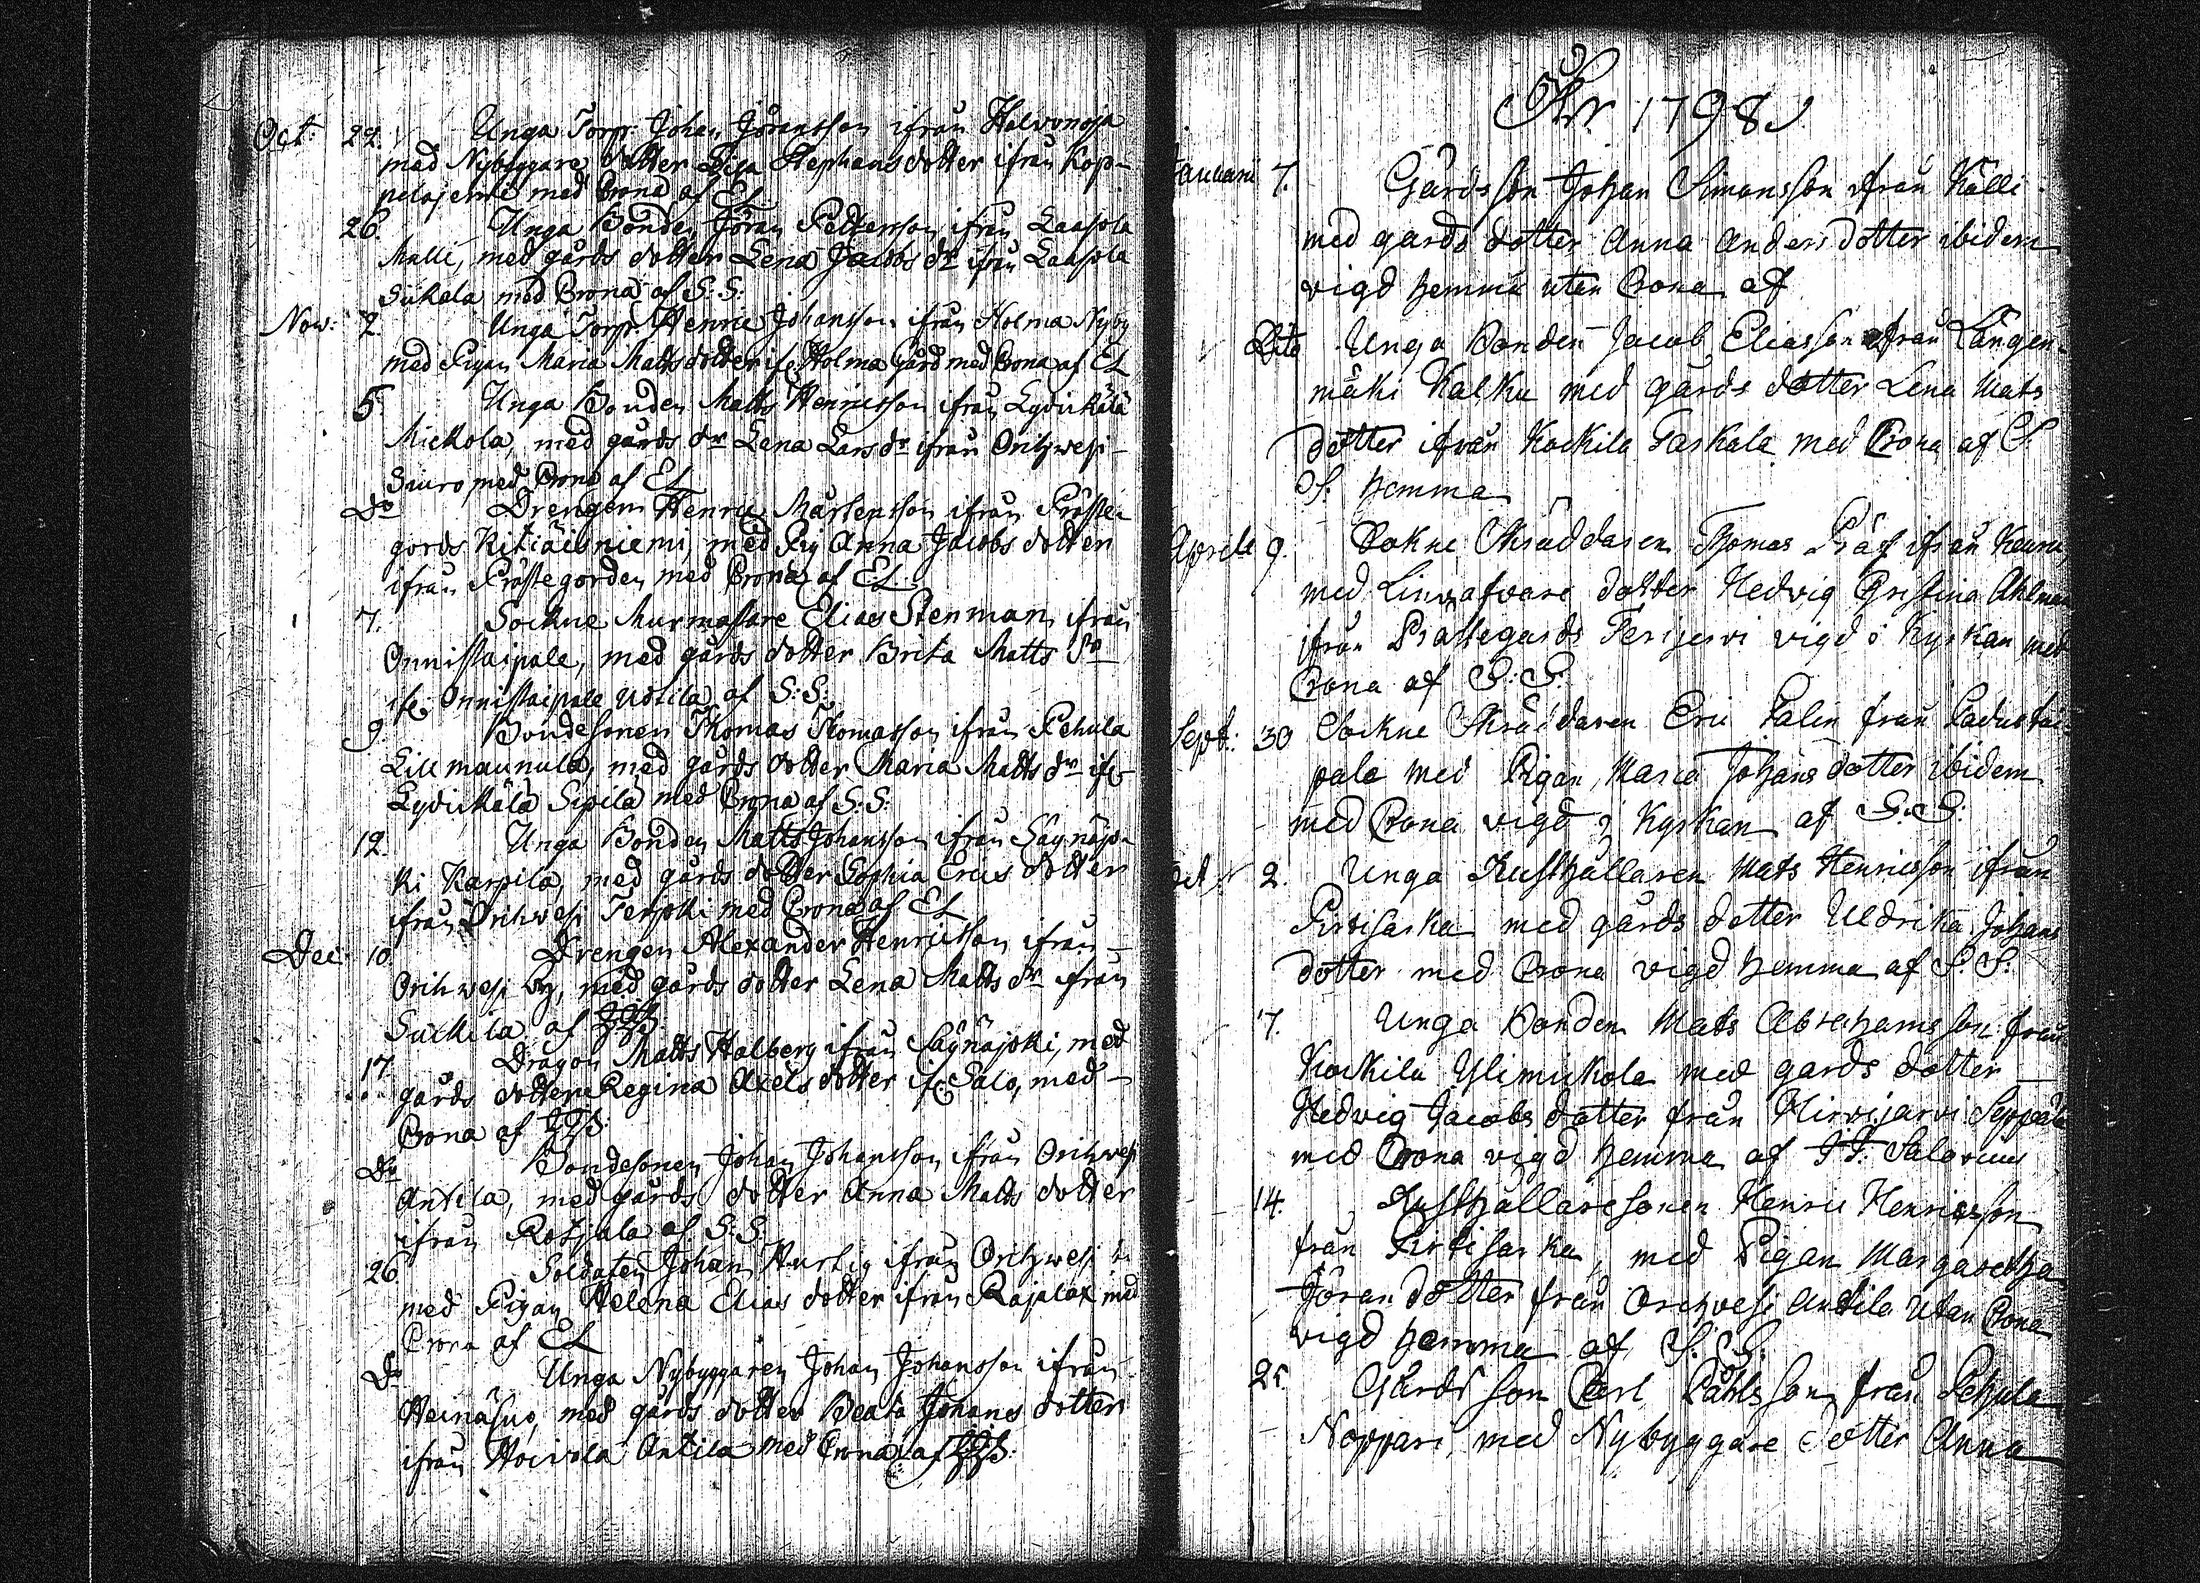 Oct: 22. Unga Torp: Johan Jöransson ifrån Halvonoja
med Nybyggare dotter Lisa Stephansdotter ifrån Kop-
pelojerwi med Crona af EL
26. Unga Bonden Jöran Pettersson ifrån Laasola
Malli, med gårds dotter Lena Jacobs dr ifrån Laasola
Siukola med Crona af S: S:
Nov: 2. Unga Torp: Henric Johansson ifrån Holma Nyby
med Pigan Maria Matts dotter ifr Holma Gård med Crona af EL
5. Unga Bonden Matts Henricsson ifrån Lydickälä
Mickola, med gårds dr Lena Lars dr ifrån Orihwesi
Siuro med Crona af EL
Do Drengen Henric Mårtensson ifrån Präste-
gords Kitiäisniemi, med Pig Anna Jacobs dotter
ifrån Prästegorden med Crona af E.L.
7. Sockne Murmästare Elias Stenman ifrån
Onnistaipale, med gårds dotter Brita Matts dr
ifr Onnistaipale Uotila af S: S:
9. Bondesonen Thomas Thomasson ifrån Pehula
Lill maunula, med gårds dotter Maria Matts dr ifr
Lydickälä Sipilä med Crona af S: S:
12. Unga Bonden Matts Johansson ifrån Säynäjo-
ki Karpila, med gårds dotter Sophia Erics dotter
ifrån Orihwesi Terjoki med Crona af EL
Dec: 10. Drengen Alexander Henricsson ifrån
Orihwesi by, med gårds dotter Lena Matts dr ifrån
Suckila af
17. Dragon Matts Halberg ifrån Säynäjoki, med
gårds dotter Regina Axels dotter ifr Salo, med
Crona af
Do Bondesonen Johan Johansson ifrån Orihwesi
Antila, med gårds dotter Anna Matts dotter
ifrån Rotjala af S: S.
26. Soldaten Johan Hurtig ifrån Orihwesi
med Pigan Helena Elias dotter ifrån Rajalax med
Crona af EL
Do Unga Nybyggaren Johan Johansson ifrån
Heinäsuo, med gårds dotter Beata Johans dotter
ifrån Hoivola Antila med Crona af
År 1798
Januarii 7. Gårdsson Johan Simonsson ifrån Källi
med gårds dotter Anna Anders dotter ibidem
vigd hemma utan Crona af
Dito Unga Bonden Jacob Eliasson ifrån Längen-
mäki Kalku med gårds dotter Lena Mats
dotter ifrån Kockila Taskala med Crona af S.
S. hemma
Aprile 9. Sokne Skräddaren Thomas Präf ifrån Keuru
med Linvafvare dotter Hedvig Cristina Ahlman
ifrån Prästegårds Terijervi vigd i Kyrkan med
Crona af S: S:
Sept: 30 Sockne Skräddaren Eric Palin från Padustai-
pale med Pigan Maria Johans dotter ibidem
med Crona vigd i Kyrkan af S: S:
Oct: 2. Unga Kusthållaren Mats Henricsson ifrån
Pirtisarka med gårds dotter Uldrika Johans
dotter med Crona vigd hemma af S. S.
7. Unga Bonden Mats Abrahamsson från
Kockila Ylimickola med gårds dotter
Hedvig Jacobs dotter från Hirvijarvi Seppälä
med Crona vigd hemma af J.F. Salovius
14. Kusthållaresonen Henric Henricsson
från Pirtisarka, med Pigan Margaretha
Jöran dotter från Orihvesi Antila utan Crona
vigd hemma af S. S.
25 Gårds son Carl Påhlsson från Pehula
Noppari, med Nybyggare dotter Anna